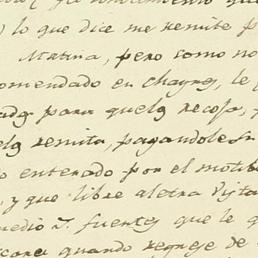 lo que dice me remite p
Matina, pero como no
comendado en Chagres, le p
para que los recoja, y
remita, pagandole su
enterado por el motibo
, y que libre aletra vista
medio J. fuentes que le q
quando regrese de